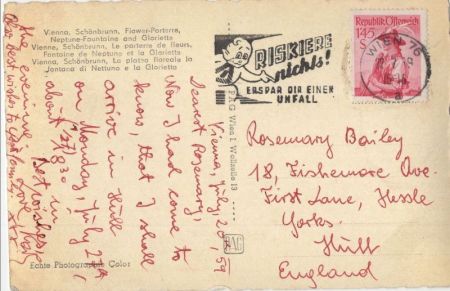 Vienna, Schönbrunn, Flower-Parterre,
Neptune-Fountaine and Gloriette
Vienne, Schönbrunn, Le parterre de fleurs,
Fontaine de Neptune et la Gloriette
Vienna, Schönbrunn, La platea floreale la
fontana di Nettuno e la Gloriette
Vienna, July, 20th, 59
Dearest Rosemary!
Now I had come to
know, that I shall
arrive in Hull
on Monday, July 27th,
about 18,30 in
the evening.
Best wishes
Love
Also best wishes to your family
Echte Photographie Color
P.A.G Wien I Wollzeile 13
PAG
RISKIERE
nichts!
ERSPAR DIR EINEN
UNFALL
WIEN 76
Republik Österreich
1'45
S
Rosemary Bailey
18, Fishemore Ove.
First Lane, Hessle
Yorks.
Hull
England